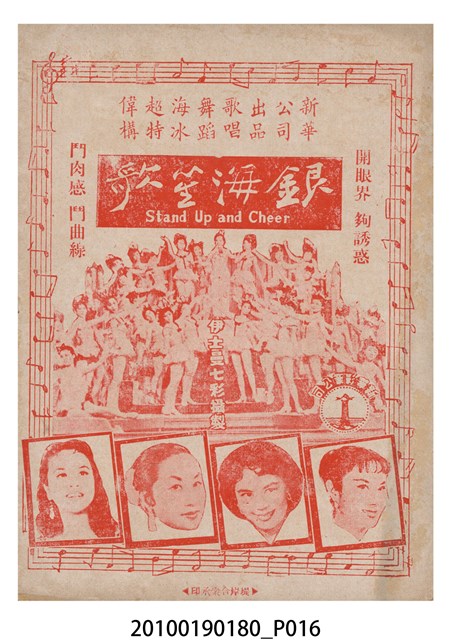 新華公司出品歌唱舞蹈海冰超特偉構
銀海笙歌
Stand Up and Cheer
開眼界 夠誘惑
鬥肉感 鬥曲線
伊士曼七彩攝製
新華影業公司
20100190180_P016